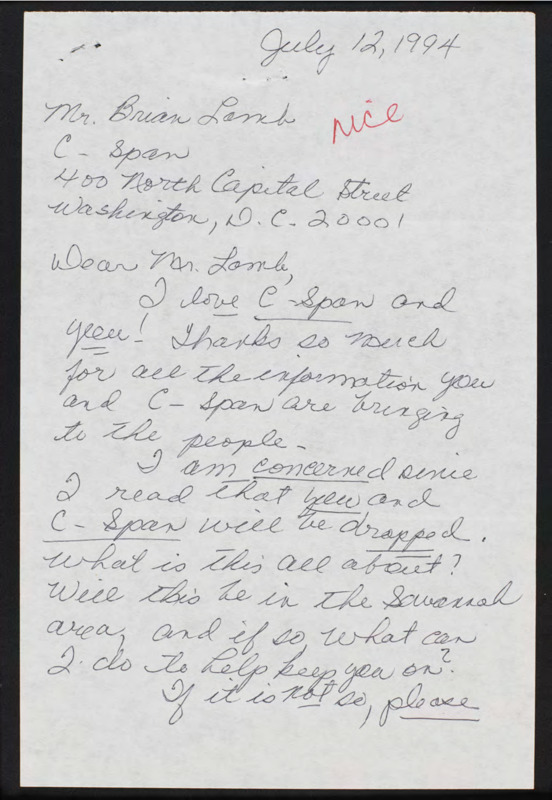 July 12, 1994
Mr. Brian Lamb
Nice
C - Span
400 North Capital Street
Washington, D.C. 20001
Dear Mr. Lamb,
I love C-Span and
you! Thanks so much
for all the information you
and C- Span are bringing
to the people-
I am concerned since
I read that you and
C- Span will be dropped.
What is this all about?
Will this be in the Savannah
area, and if so what can
I do to help keep you on?
If it is not so, please